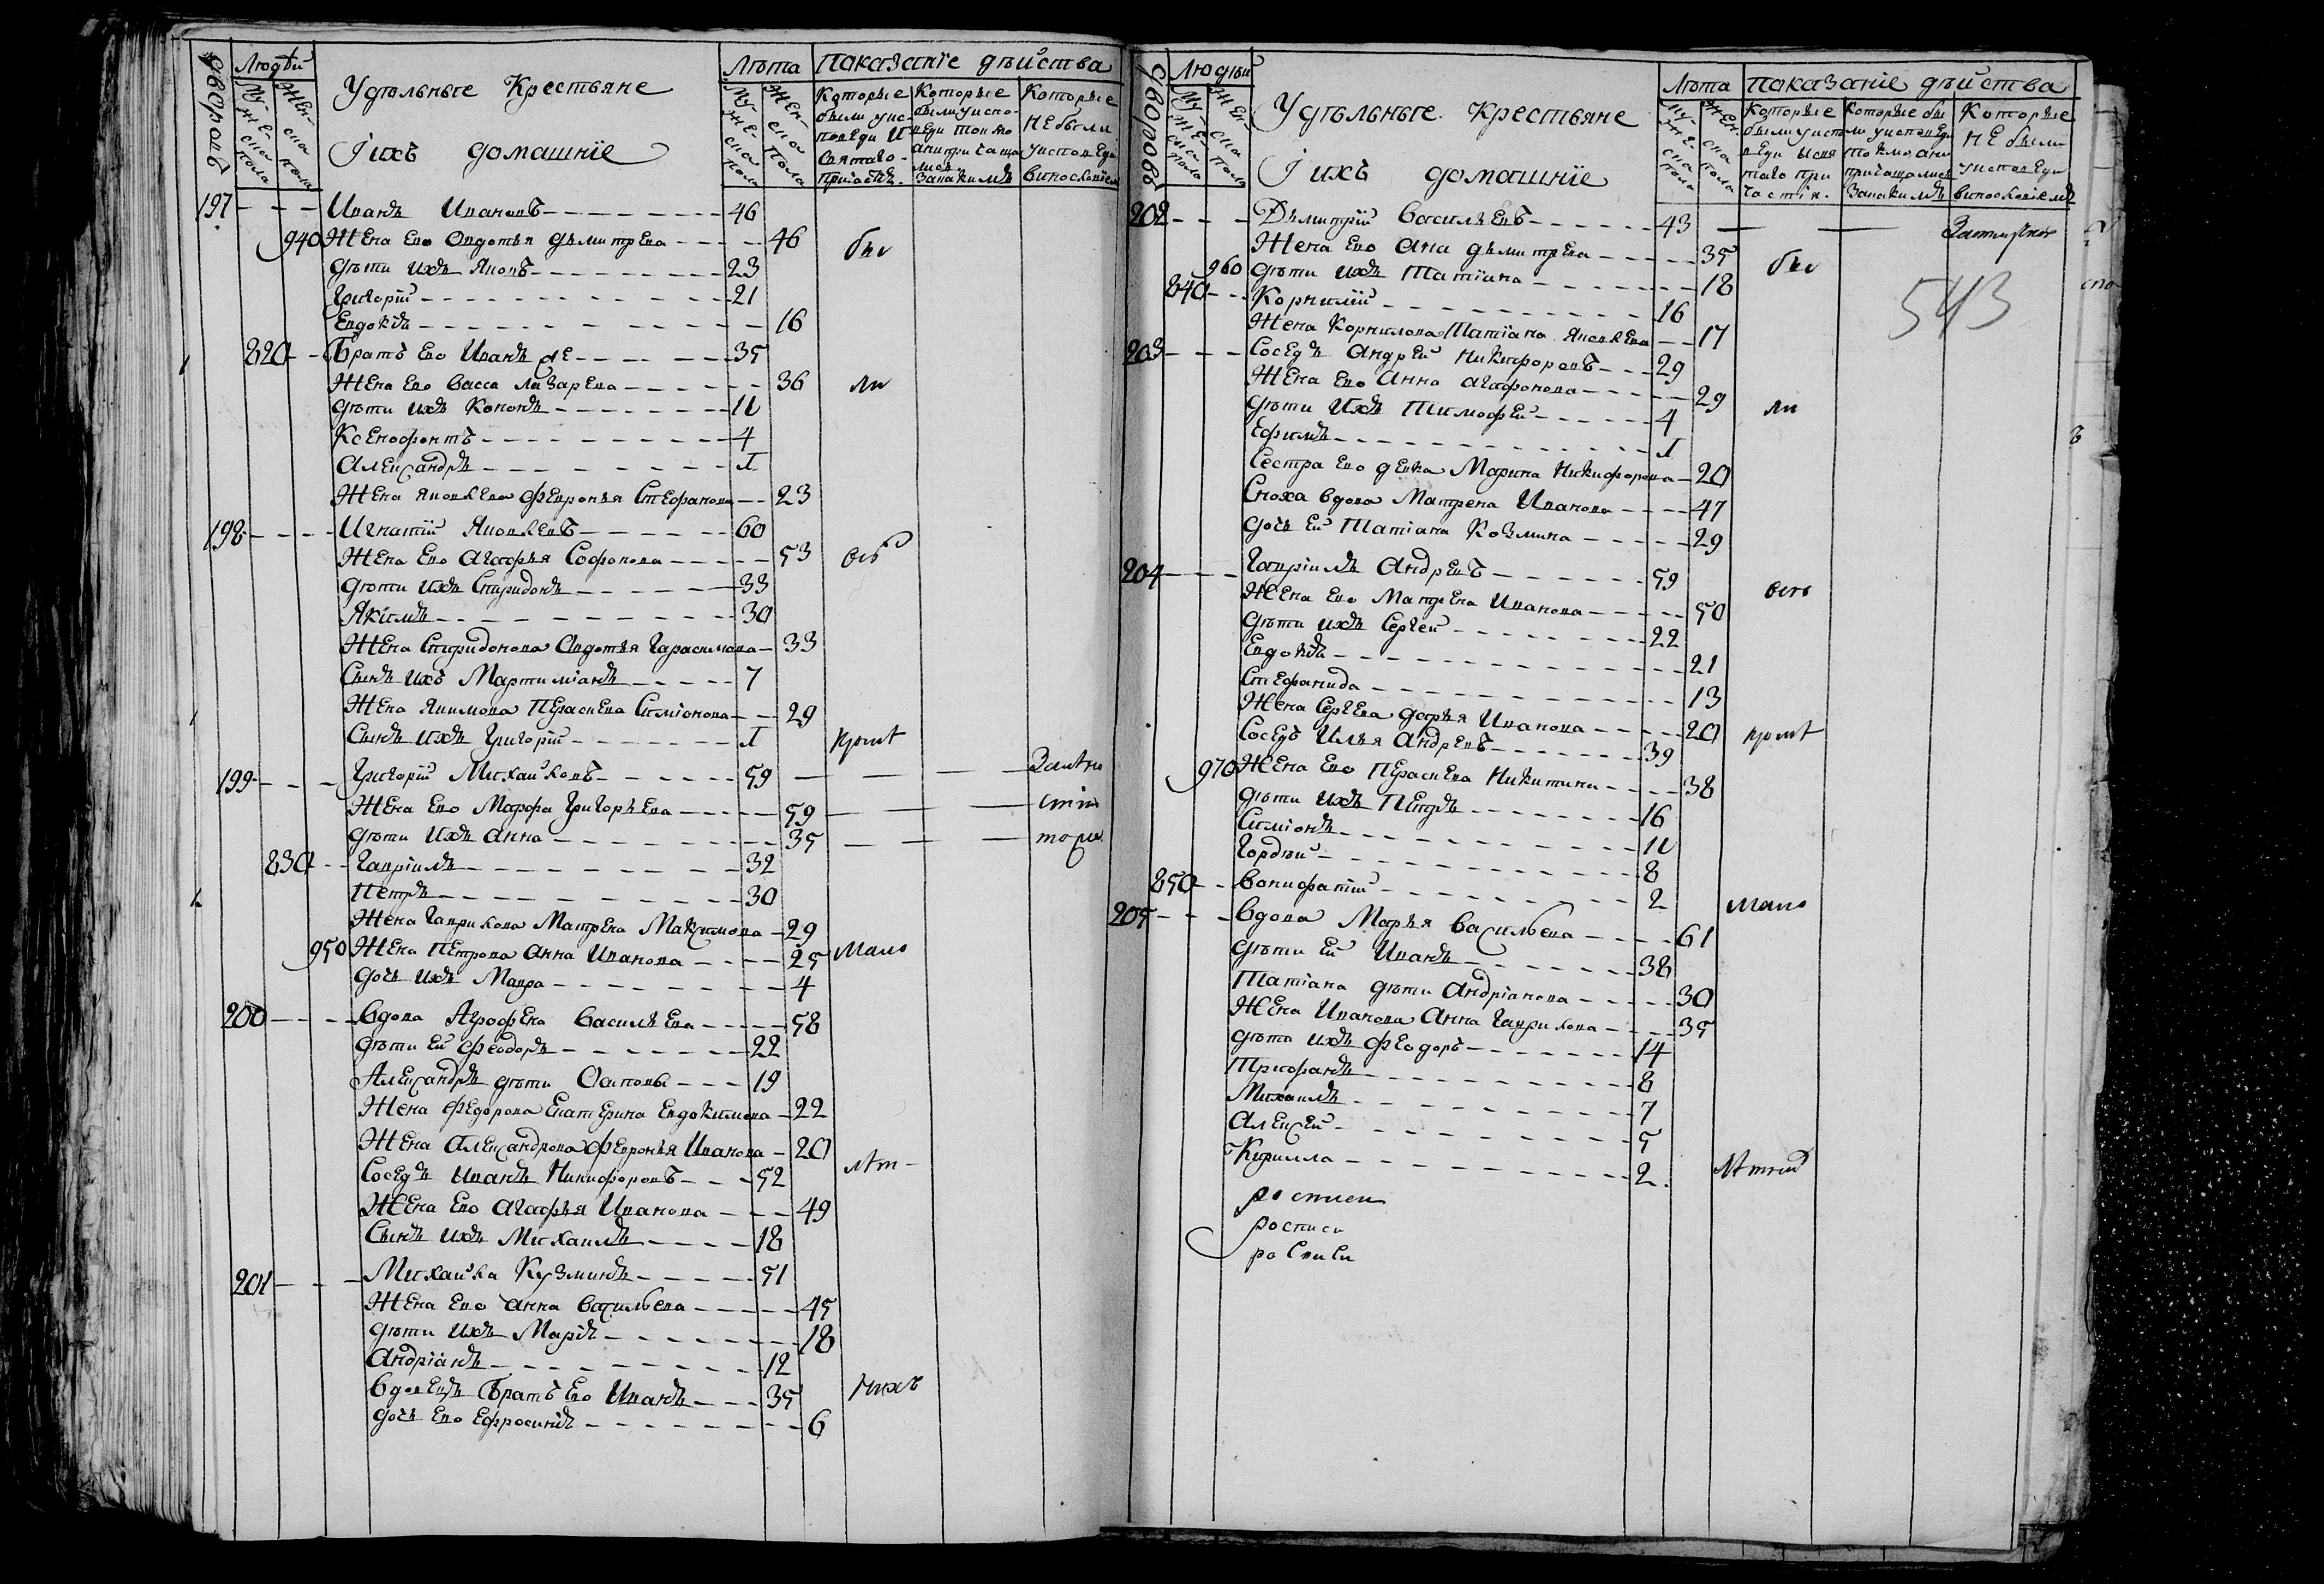 дворовъ
Людѣй
Мужеска пола
Женска пола
Удѣльныѣ Крестьянѣ
Іихъ домашніе
Лѣта
Мужеска пола
Женска пола
Показаніе дѣйства
Которые были уисповеди и святаго причастія
Которые были уисповеди токмо а непричащались
Которые не были уисповеди
197 Иванъ Ивановъ 46
940 Жена Ево Овдотья дѣмитрева 46 бы
дѣти ихъ Яковъ 23
Григорій 21
Евдокія 16
820 Братъ Ево Иванъ же 35
Жена Ево Васса лазарева 36 ли
дѣти ихъ Кононъ 11
Ксенофонтъ 4
Александръ 1
Жена Яковлева Февронья Стефанова 23
198 Игнатій Яковлевъ 60
Жена Ево Агафья Софонова 53
дѣти ихъ Спиридонъ 33
Якимъ 30
Жена Спиридонова Овдотья Гарасимова 33
Сынъ ихъ Мартиміанъ 7
Жена Якимова Пераскева Симіонова 29
Сынъ ихъ Григорій 1 кромѣ
199 Григорій Михайловъ 59
Жена Ево Марфа Григорьева 59
дѣти ихъ Анна 35
830 Гавріилъ 32
Петръ 30
Жена Гаврилова Матрена Максимова 29
950 Жена Петрова Анна Иванова 25 мало
дочь ихъ Мавра 4
200 Вдова Агрофена Васильева 58
дѣти ей Феодоръ 22
Александръ дѣти Осиповы 19
Жена Федорова Екатерина Евдокимова 22
Жена Александрова Февронья Иванова 20
Соседъ Иванъ Никифоровъ 52 лѣт
Жена Ево Агафья Иванова 49
Сынъ ихъ Михаилъ 18
201 Михайла Кузминъ 51
Жена Ево Анна Васильева 45
дѣти ихъ Марія 18
Андріанъ 12
Вдовецъ Братъ Ево Иванъ 35 нихъ
дочь Ево Ефросинія 6
дворовъ
Людѣй
Мужеска пола
Женска пола
Удѣльные Крестьяне
Іихъ домашніе
Лѣта
Мужеска пола
Женска пола
показаніе дѣйства
Которые были уисповеди исвятаго причастія
Которые были уисповеди токмо а непричащались
Которые не были уисповеди
202 Дѣмитрій Васильевъ 43
Жена Ево Ана дѣмитрева 35 бы
960 дѣти ихъ Татіана 18
543
840 Корнилій 16
Жена Корнилова Татіана Яковлева 17
203 Соседъ Андрей Никифоровъ 29
Жена Ево Анна Агафонова 29 ли
дѣти ихъ Тимофей 4
Ефимъ 1
Сестра Ево девка Марина Никифорова 20
Сноха вдова Матрена Иванова 47
дочь ей Татіана Козмина 29
204 Гавріилъ Андревъ 59
Жена Ево Матрена Иванова 50
дѣти ихъ Сергей 22
Евдокія 21
Стефанида 13
Жена Сергева дарья Иванова 20 кромѣ
Соседъ Илья Андревъ 39
970 Жена Ево Пераскева Никитина 38
дѣти ихъ Петръ 16
Симіонъ 11
Гордѣй 8
850 Вонифатій 2 мало
205 Вдова Марья Васильева 61
дѣти ей Иванъ 38
Татіана дѣти Андріановы 30
Жена Иванова Анна Гаврилова 35
дѣти ихъ Феодоръ 14
Трифанъ 8
Михаилъ 7
Алексей 5
Кирилла 2
росписи
росписи
росписи